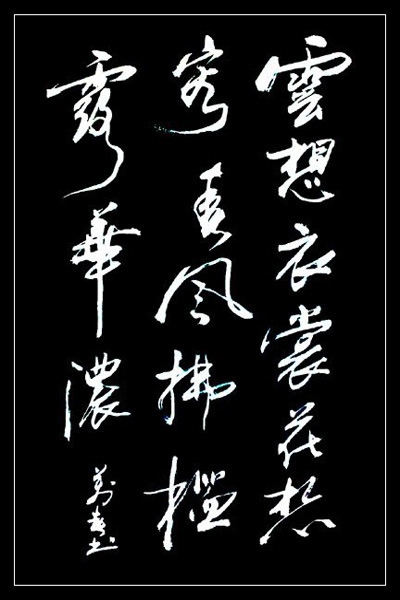 雲想衣裳花想
容春風拂檻
露華濃